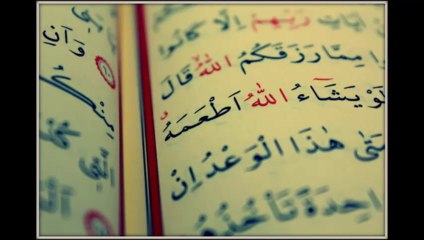 اٰيَاتِ رَبِّهِمْ اِلَّا كَانُوا
مِمَّا رَزَقَكُمُ اللّٰهُ قَالَ
لَوْ يَشَٓاءُ اللّٰهُ اَطْعَمَهُ
مَتٰى هٰذَا الْوَعْدُ اِنْ
وَاحِدَةً تَأْخُذُهُمْ
وَاَنِ